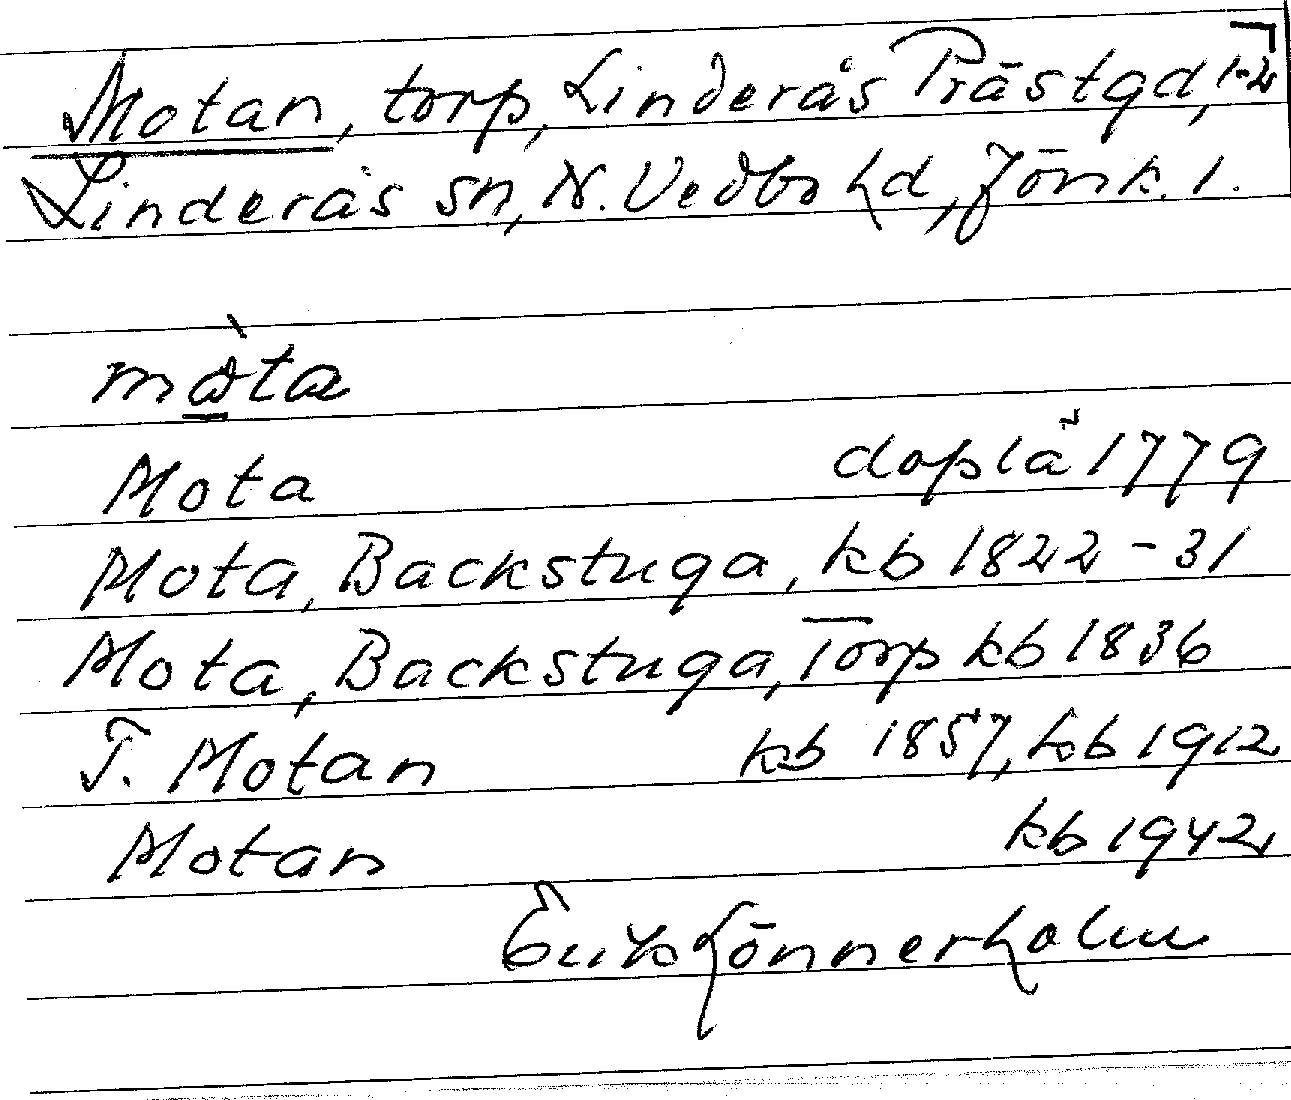 Motan, torp, Linderås Prästgd, 1-2
Linderås sn, N. Vedbo hd, Jönk. l.
mò̲ta
Mota doplä 1779
Mota, Backstuga, kb 1822-31
Mota, Backstuga, Torp kb 1836
T. Motan kb 1857, hb 1912
Motan kb 1942
Erik Lönnerholm